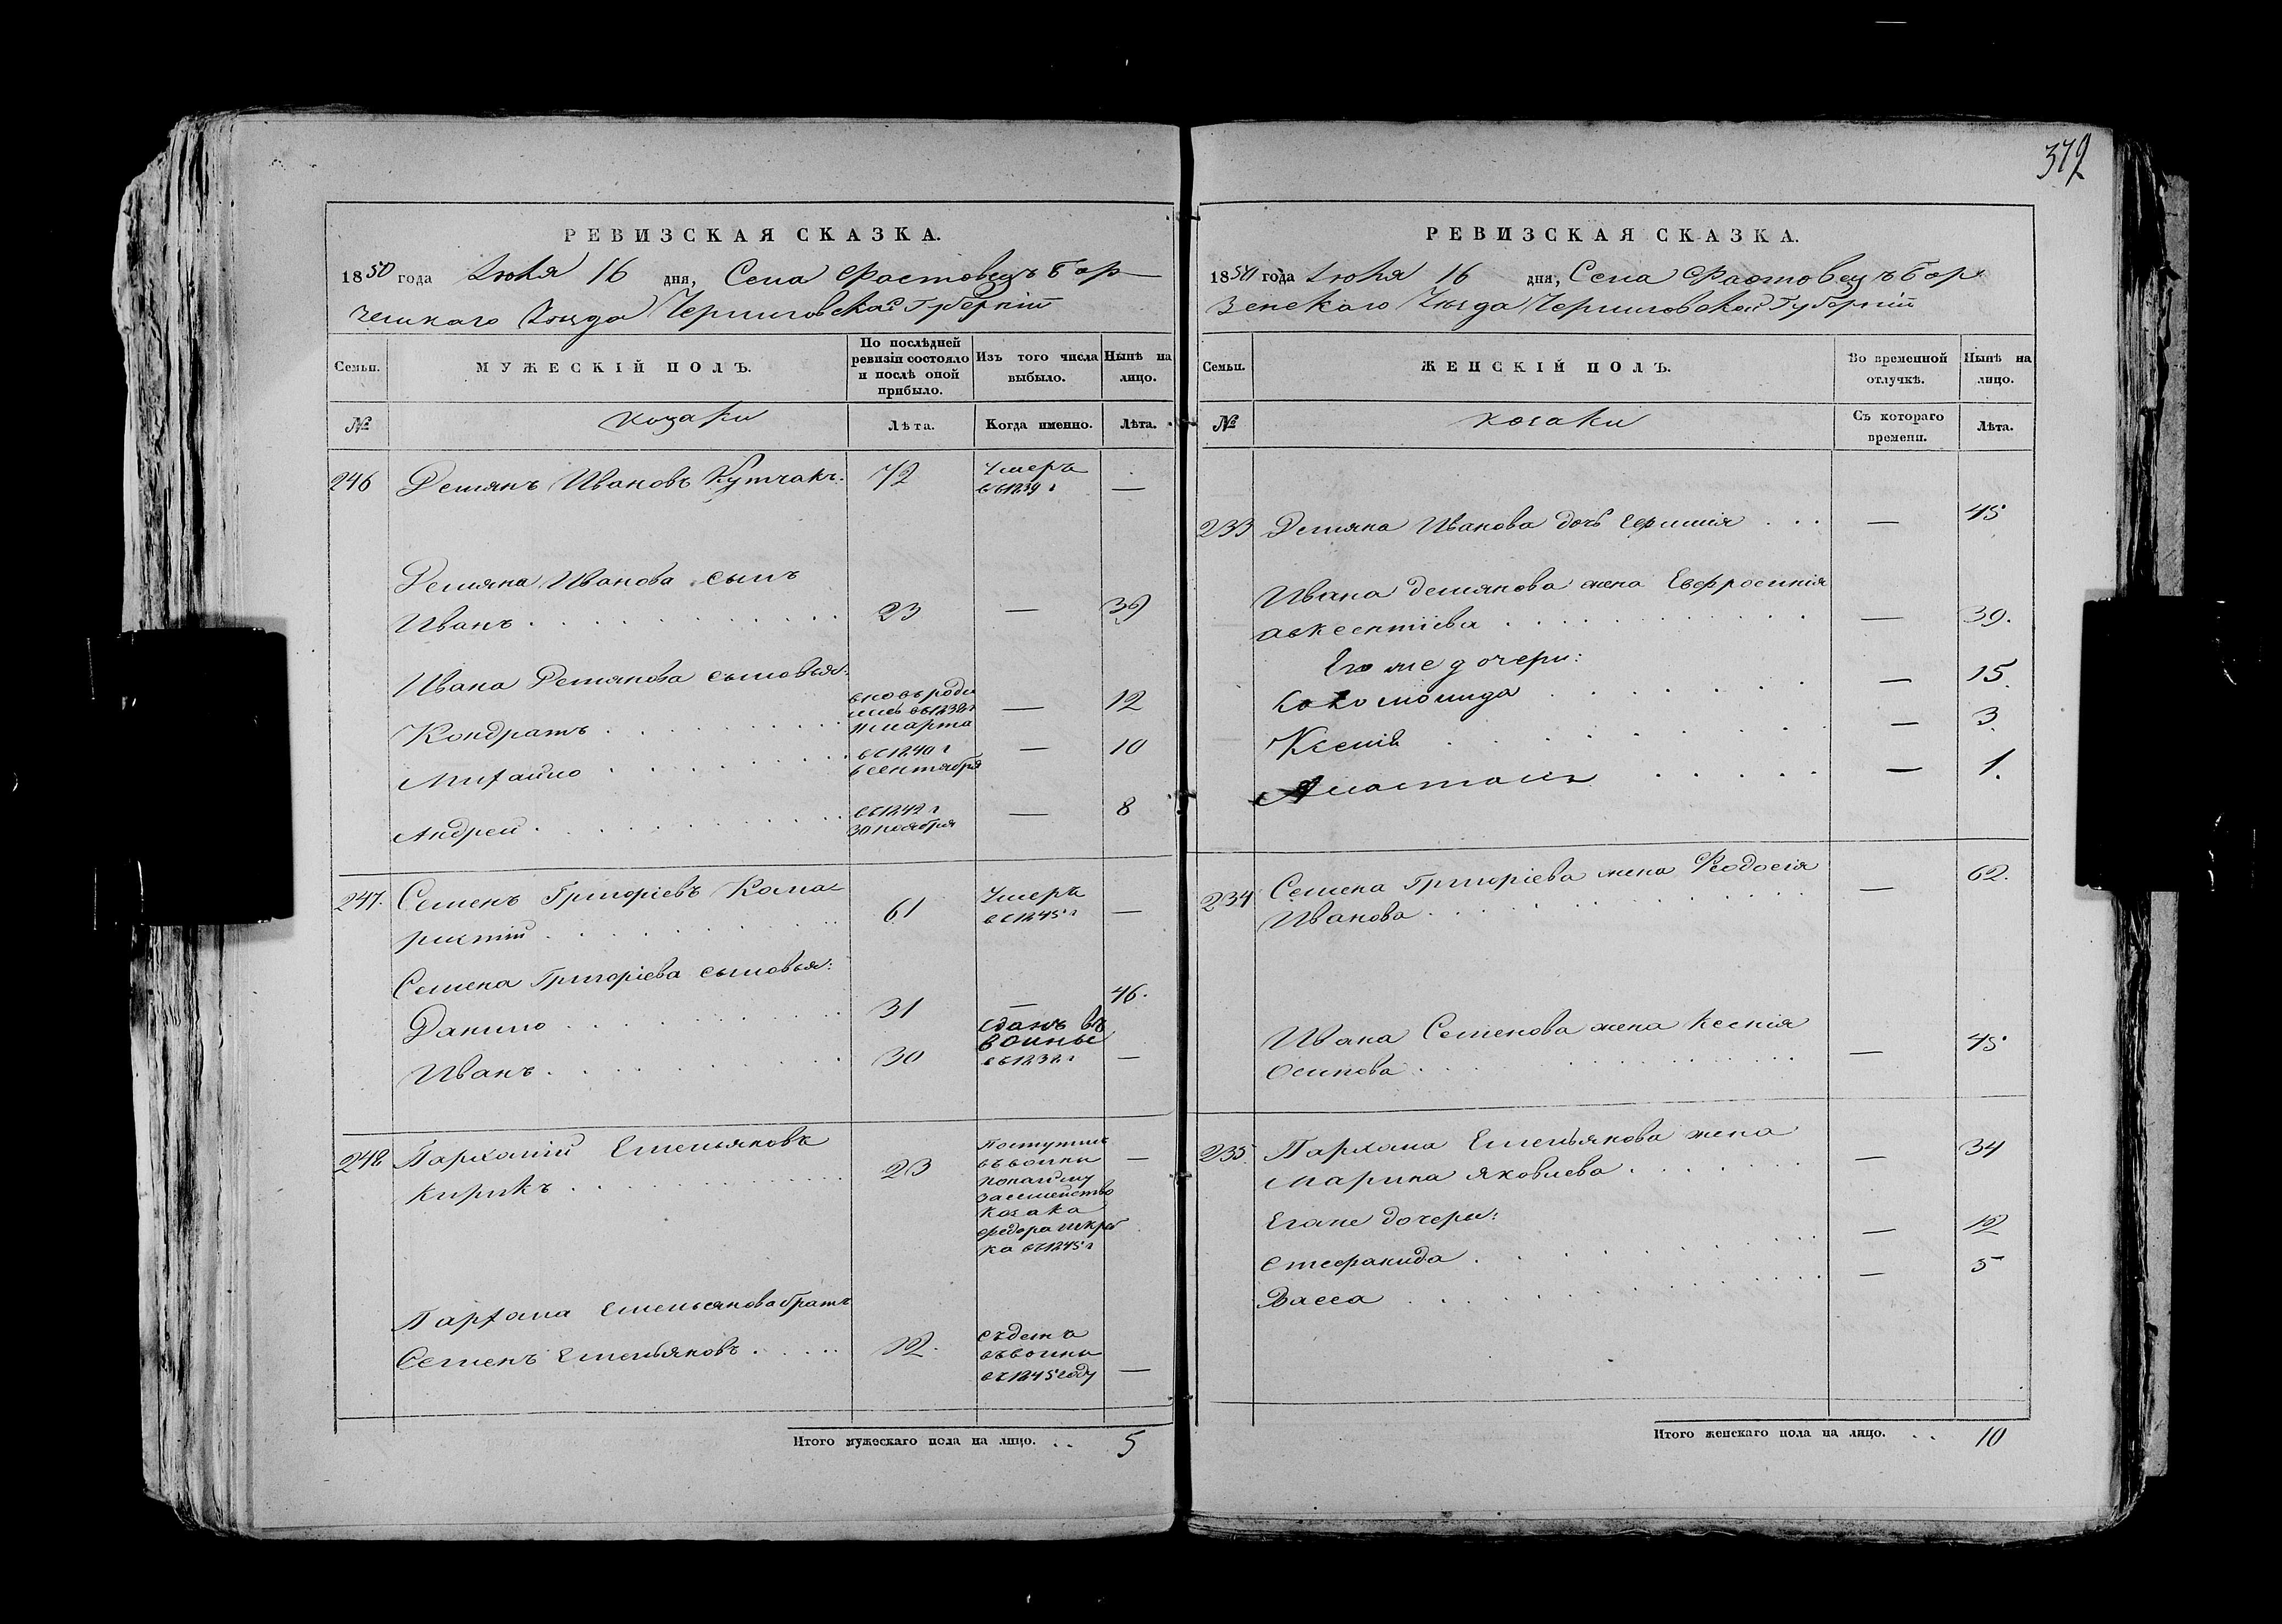 372
РЕВИЗСКАЯ СКАЗКА.
1850 года Іюня 16 дня, Села Фастовецъ Бор
зенскаго Уѣзда Черниговской Губерніи
Семьи.
МУЖЕСКІЙ ПОЛЪ.
По послѣдней ревизіи состояло и послѣ оной прибыло.
Изъ того числа выбыло.
Нынѣ на лицо.
№
козаки
Лѣта.
Когда именно.
Лѣта.
246 Демянъ Ивановъ Кутчакъ. 72 Умеръ —
въ 1839 г
Демяна Иванова сынъ
Иванъ 23 — 39
Ивана Демянова сыновья:
Кондратъ вновь роди — 12
лись въ 1838 г
марта
Михайло въ 1840 г — 10
сентября
Андрей въ 1842 г — 8
30 ноября
247. Семенъ Григоріевъ Кома 61 Умеръ —
въ 1845 г
Семена Григоріева сыновья:
Данило 31 — 46.
Иванъ 30 сданъ въ —
воины
въ 1832 г
248 Пархомій Емельяновъ 23 Поступилъ —
Кирикъ въ воины
по найму
за семейство
козака
Федора
ка въ 1845 г
Пархома Емельянова братъ
Семенъ Емельяновъ 12. —
въ воины
въ 1845 году
Итого мужескаго пола на лицо. . . 5
РЕВИЗСКАЯ СКАЗКА.
1850 года Іюня 16 дня, Села Фастовецъ Бор
зенскаго Уѣзда Черниговской Губерніи
Семьи.
ЖЕНСКІЙ ПОЛЪ.
Во временной отлучкѣ.
Нынѣ на лицо.
№
козаки
Съ котораго времени.
Лѣта.
233 Демяна Иванова дочь . . . — 45
Ивана Демянова жена Евфросинія
Авксентіева — 39.
Его же дочери:
— 15.
Ксенія — 3.
Анастасія — 1.
234 Семена Григоріева жена Феодосія — 62.
Иванова
Ивана Семенова жена Ксенія
Осипова — 45
235. Пархома Емельянова жена
Марина Яковлева — 34
Его же дочери:
Стефанида — 12
Васса — 5
Итого женскаго пола на лицо. . . 10